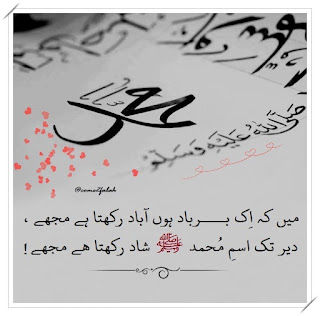 محمد
صَلَّى اللهُ عَلَيْهِ وَسَلَّمَ
@comeiifalah
میں کہ اِک بـــرباد ہوں آباد رکھتا ہے مجھے ،
دیر تک اسمِ مُحمد ﷺ شاد رکھتا ھے مجھے !